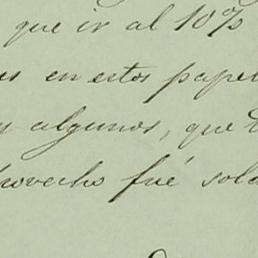 que ir al 10%
es en estos papel
y algunos, que
rovecho fué sola